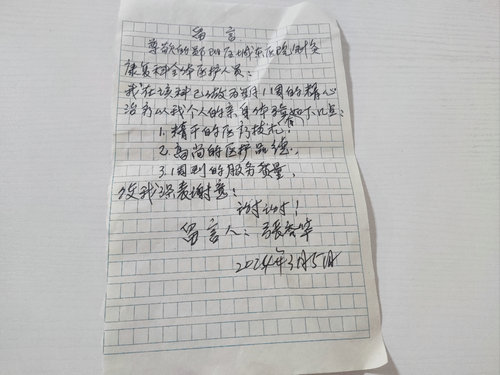 留言
尊敬的郑州庄城东医院附
康复科全体医护人员:
我在该科已做两月1周的精心
治疗以我个人的亲身体验如下几点:
1.精干的医疗技术
2.高尚的医护品德
3.周到的服务质量
使我深表谢意!
谢谢!
留言人:张
2024年3月5日